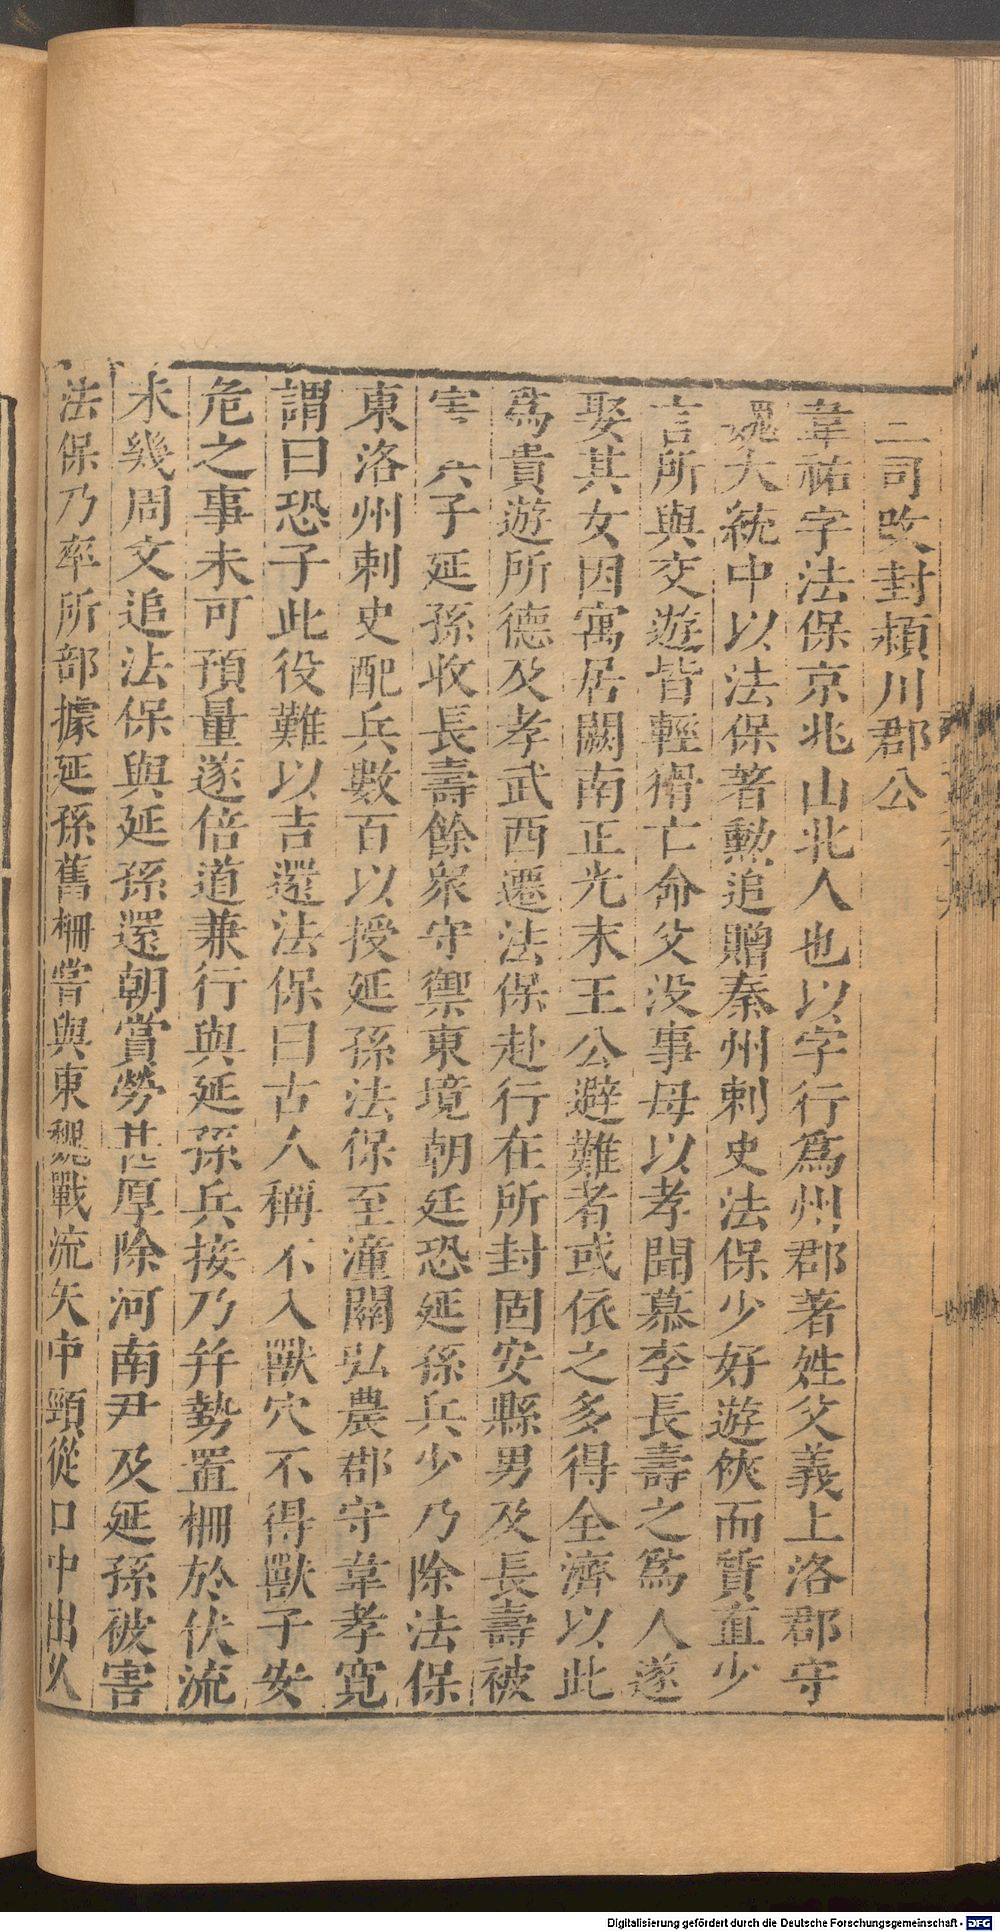 三司改封頴川郡公
韋祐字法保京兆山北人也以字行爲州郡著姓父義上洛郡守
魏大統中以法保著勲追贈秦州刺史法保少好遊俠而質直少
言所與交遊皆輕猾亡命父没事母以孝聞慕李長壽之爲人遂
娶其女因寓居闕南正光末王公避難者或依之多得全濟以此
爲貴遊所德及孝武西遷法保赴行在所封固安縣男及長壽被
害其子延孫收長壽餘衆守禦東境朝廷恐延孫兵少乃除法保
東洛州刺史配兵數百以授延孫法保至潼關弘農郡守韋孝寛
謂曰恐子此役難以吉還法保曰古人稱不入獸穴不得獸子安
危之事未可預量遂倍道兼行與延孫兵接乃并勢置栅於伏流
未幾周文追法保與延孫還朝賞勞甚厚除河南尹及延孫被害
法保乃率所部據延孫舊栅嘗與東魏戰流矢中頸從口中出久
Digitalisierung gefördert durch die Deutsche Forschungsgemeinschaft - DFG